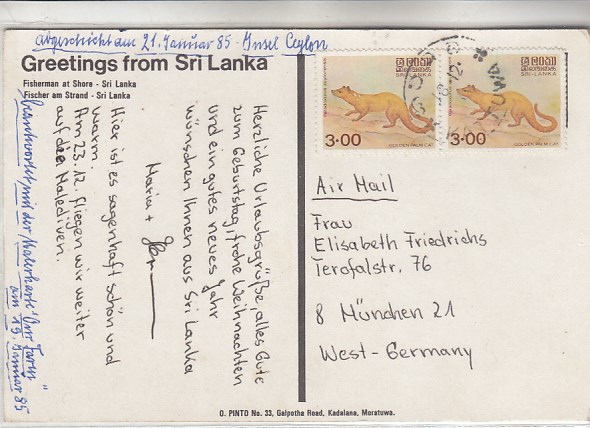 abgeschickt am 21. Januar 85 - Insel Ceylon
Greetings from Sri Lanka
Fisherman at Shore - Sri Lanka
Fischer am Strand - Sri Lanka
Herzliche Urlaubsgrüße, alles Gute
zum Geburtstag, frohe Weihnachten
und ein gutes neues Jahr
wünschen Ihnen aus Sri Lanka
Maria +
Hier ist es sagenhaft schön und
warm.
Am 23.12. fliegen wir weiter
auf die Malediven.
beantwortet mit der Malerkarte "Der Turm"
am 19. Januar 85
ශ්‍රී ලංකා
இலங்கை
SRI LANKA
3.00
GOLDEN PALM CAT
ශ්‍රී ලංකා
இலங்கை
SRI-LANKA
3.00
GOLDEN PALM CAT
Air Mail
Frau
Elisabeth Friedrichs
Terofalstr. 76
8 München 21
West-Germany
O. PINTO No. 33, Galpotha Road, Kadalana, Moratuwa.